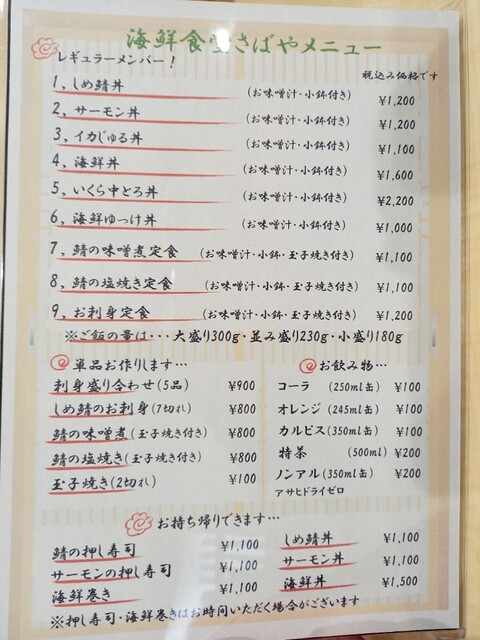 海鮮食堂さばやメニュー
レギュラーメンバー！
税込み価格です
1，しめ鯖丼 (お味噌汁・小鉢付き) ¥1,200
2，サーモン丼 (お味噌汁・小鉢付き) ¥1,200
3，イカじゅる丼 (お味噌汁・小鉢付き) ¥1,100
4，海鮮丼 (お味噌汁・小鉢付き) ¥1,600
5，いくら中とろ丼 (お味噌汁・小鉢付き) ¥2,200
6，海鮮ゆっけ丼 (お味噌汁・小鉢付き) ¥1,000
7，鯖の味噌煮定食 (お味噌汁・小鉢・玉子焼き付き) ¥1,100
8，鯖の塩焼き定食 (お味噌汁・小鉢・玉子焼き付き) ¥1,100
9，お刺身定食 (お味噌汁・小鉢・玉子焼き付き) ¥1,200
※ご飯の量は・・・大盛り300g・並み盛り230g・小盛り180g
単品お作りします…
刺身盛り合わせ(5品) ¥900
しめ鯖のお刺身(7切れ) ¥800
鯖の味噌煮(玉子焼き付き) ¥800
鯖の塩焼き(玉子焼き付き) ¥800
玉子焼き(2切れ) ¥100
お飲み物…
コーラ (250ml缶) ¥100
オレンジ (245ml缶) ¥100
カルピス(350ml缶) ¥100
特茶 (500ml) ¥200
ノンアル(350ml缶) ¥200
アサヒドライゼロ
お持ち帰りできます…
鯖の押し寿司 ¥1,100
サーモンの押し寿司 ¥1,100
海鮮巻き ¥1,100
しめ鯖丼 ¥1,100
サーモン丼 ¥1,100
海鮮丼 ¥1,500
※押し寿司・海鮮巻きはお時間いただく場合がございます